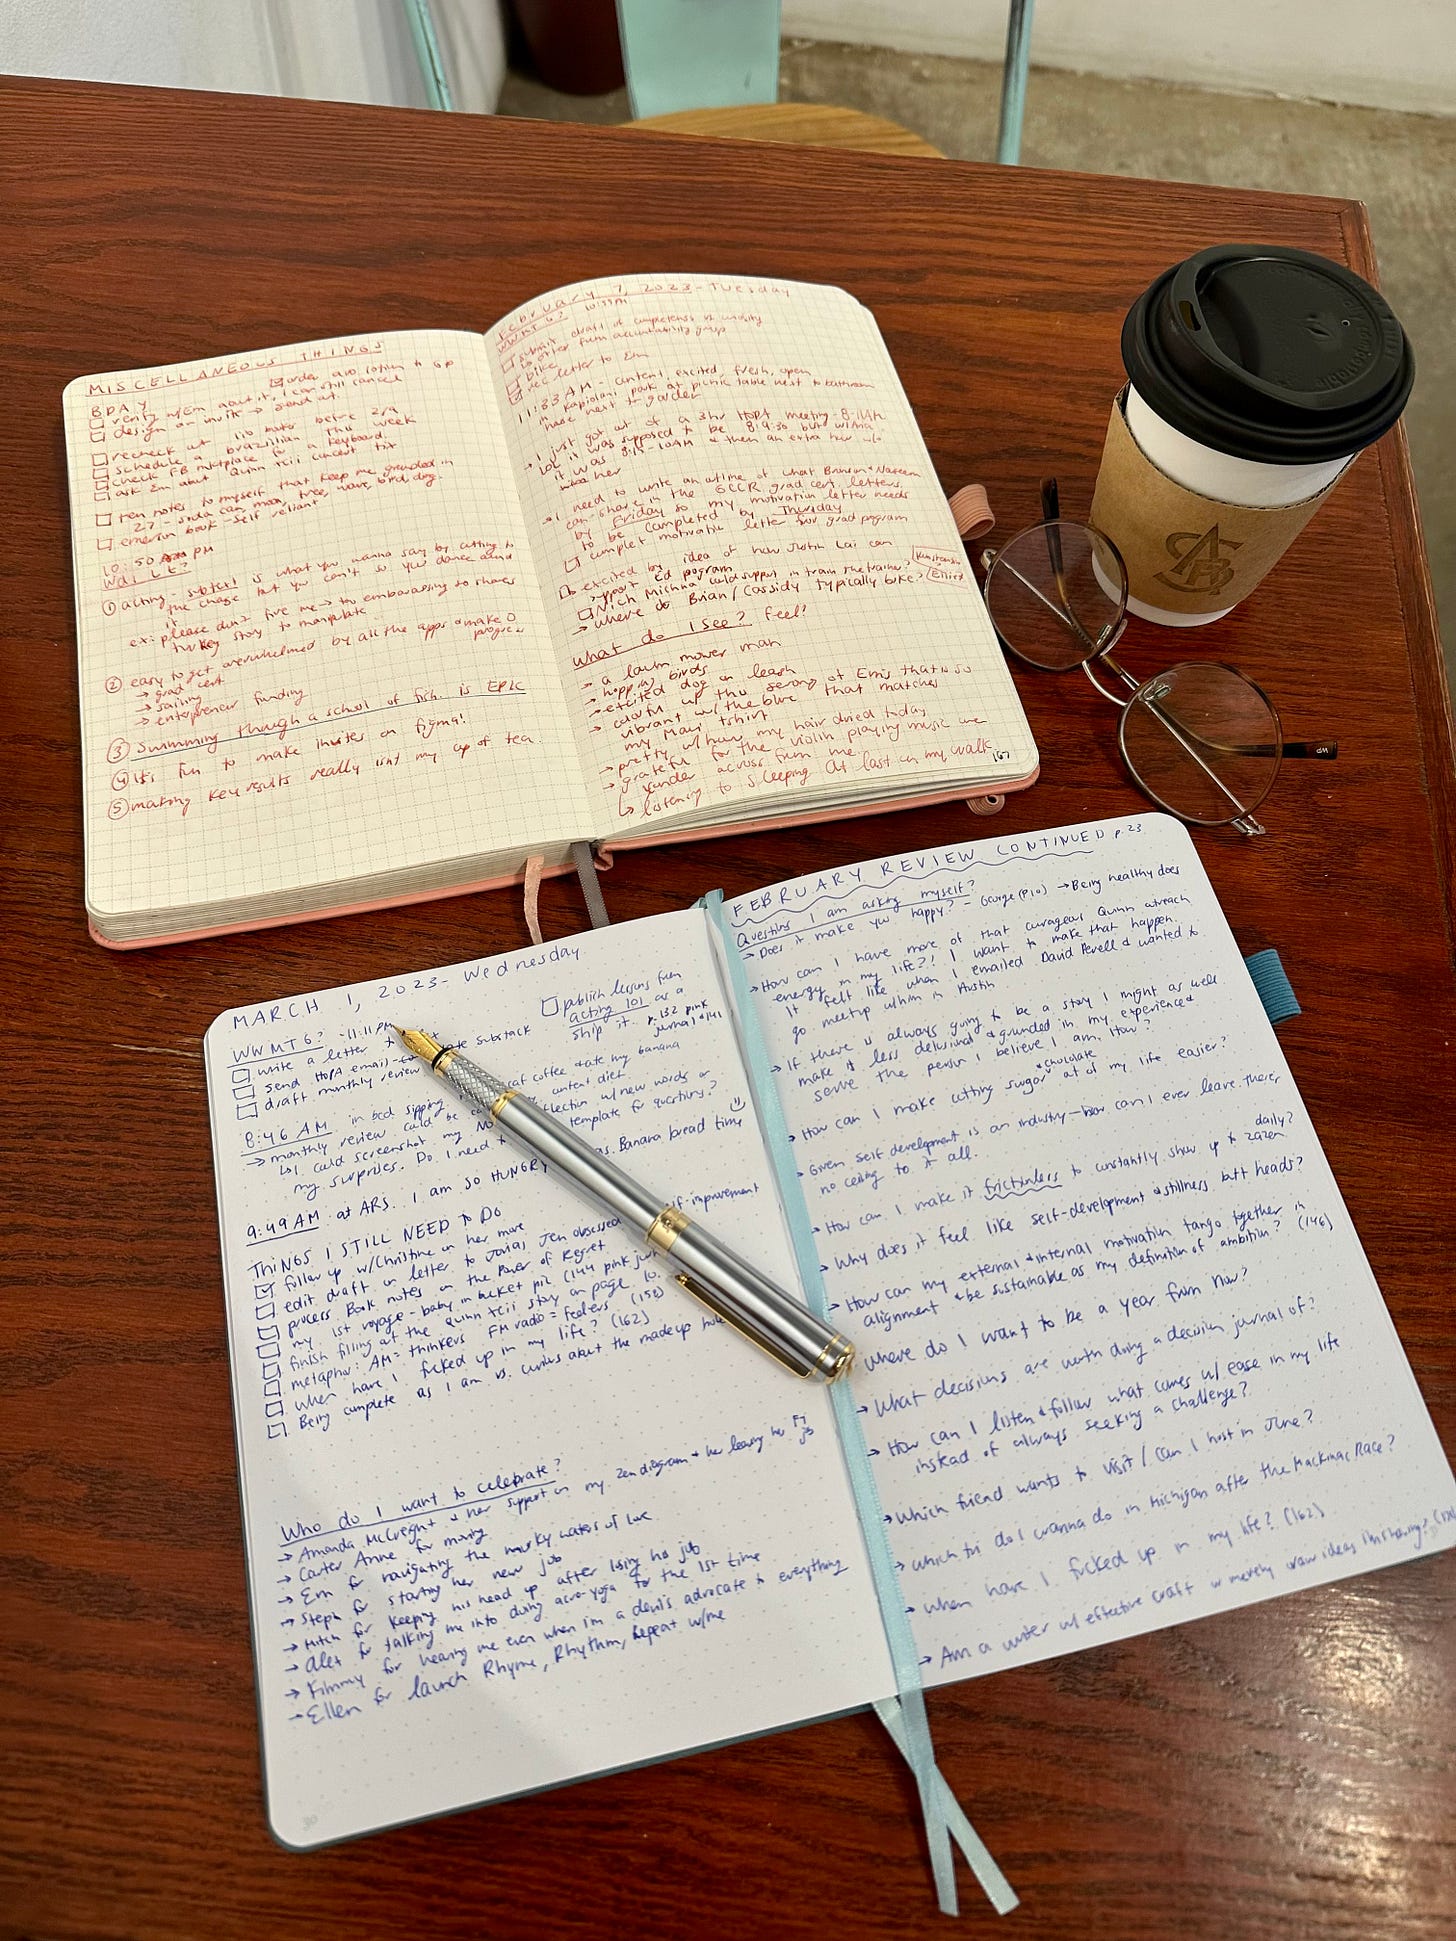 MISCELLANEOUS THINGS
BDAY
order
verify w/Em about it, I can still cancel
design an invite → send at
recheck at
before 2/9
schedule a brazillian this week
check FB mktplace for a keyboard
ask Em about Quinn XCII concert
ten notes to myself that keep me grounded in
27 - soda can, moon, tree, wave, bird, dog
emerson book - self reliant
10:50 PM
① acting - subtext is what you wanna say by cutting to
the chase but you can't so you dance around
it
ex: please don't fire me → too embarrassing so shares
turkey story to manipulate
② easy to get overwhelmed by all the apps & make 0
progress
→ grad cert
→ sailing
→ enterpreneur funding
③ Swimming through a school of fish is EPIC
④ It's fun to make invites on figma!
⑤ making key results really isnt my cup of tea.
February 7, 2023 - Tuesday
WWMT6?
submit draft of completeness vs curiosity
to otter fum accountability group
bike
rec letter to Em
11:33 AM - content, excited, fresh, open
Kapiolani park at picnic table next to bathroom
next to garden
→ I just got out of a 3hr HOPA meeting - 8-11AM
lol it was supposed to be
it was 8:15-10AM & then an extra hour w/o
her
→ I need to write an outline of what Branson & Naseem
can share in the GCCR grad cert. letters
by Friday so my motivation letter needs
to be completed by Thursday
complet motivatin letter for grad program
excited by idea of how Justin Lai can
support Ed program
Nich Michna could support in train the trainer?
→ where do Brian/Cassidy typically bike?
What do I see? feel?
→ a lawn mower man
→ hopping birds
→ excited dog on leash
→ colorful
of Em's that is so
vibrant w/the blue that matches
my Maui tshirt
→ pretty w/how my hair dried today
→ grateful for the violin playing music
yonder across from me
↳ listening to Sleeping At Last on my walk
167
MARCH 1, 2023 - Wednesday
WWMT6? - 11:11 PM
write a letter
send HOPA email
substack
draft monthly review
publish lessons from
acting 101 as a
ship it. p.132 pink
jurnal #141
8:46 AM in bed sipping
coffee & ate my banana
→ monthly review could be
content diet
↳ I could screenshot my
w/new words or
my surprises. Do I need
template for quarterly?
9:49 AM at ARS. I am so HUNGRY
Banana bread time
THINGS I STILL NEED TO DO
follow up w/Christine on her move
edit draft on letter to
Jen obsessed
self-improvement
process Book notes on the Power of Regret
my 1st voyage - baby in bucket pic (144 pink
finish filling out the Quinn xcii story on page 10.
metaphor: AM = thinkers FM radio = feelers (158)
When have I fucked up in my life? (162)
Being complete as I am vs. curious about the made up
Who do I want to celebrate?
→ Amanda McCreight & her support on my Zen diagram & her leaving her
→ Carter Anne for moving
→ Em for navigating the murky waters of love
→ Steph for starting her new job
→ Mitch for keeping his head up after losing his job
→ Alex for talking me into doing acro-yoga for the 1st time
→ Kimmy for hearing me even when I'm a devil's advocate to everything
→ Ellen for launch Rhyme, Rhythm, Repeat w/me
30
FEBRUARY REVIEW CONTINUED p.23
Questins I am asking myself?
→ Does it make you happy? - George (p10) → Being healthy does
→ How can I have more of that courageous Quinn outreach
energy in my life?! I want to make that happen.
It felt like when I emailed David Perell & wanted to
go meetup w/him in Austin
→ If there is always going to be a story I might as well
make it less delusional & grounded in my experience &
serve the person I believe I am. How?
→ How can I make cutting sugar & chocolate out of my life easier?
→ Given self development is an industry - how can I ever leave there
no ceiling to it all.
→ How can I make it frictionless to constantly show up to zazen daily?
→ Why does it feel like self-development & stillness butt heads?
→ How can my external & internal motivation tango together in
alignment & be sustainable as my definition of ambition? (146)
→ Where do I want to be a year from now?
→ What decisions are worth doing a decision journal of?
→ How can I listen & follow what comes w/ ease in my life
instead of always seeking a challenge?
→ Which friend wants to visit / can I host in June?
→ which tri do I wanna do in michigan after the Mackinac Race?
→ When have I fucked up in my life? (162)
→ Am a writer w/ effective craft or merely
ideas I'm sharing?